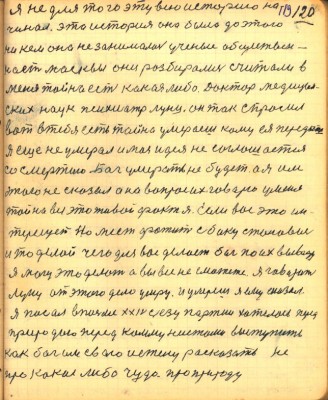 19/20
Я не для того эту всю историю на
чинал, это история она было до этого
ни кем она не занималась ученые общетвен-
ности москвы они розбирались считали в
меня тайна есть какая либо. Доктор медицин
ских наук психиатр лунц. он так спросил
вот в тебя есть тайна умрешь кому ея передаш
Я еще не умерал и моя идея не соглошается
со смертью. Бог умерать не будет. а я им
этого не сказал
тайна вег это живой факт я. Если вас это ин-
терещует но мест
и это делай чего для вас делает Бог по их выводу
Я могу это делать а вы все не сможете. Я говорил
Лунцу от этого дело умру. и умереш я ему сказал.
Я писал в поеме XXIV сезду партии хотелось през
природою перед коммунистами выступить
как богом своего истену расказать не
про какое либо чудо про природу